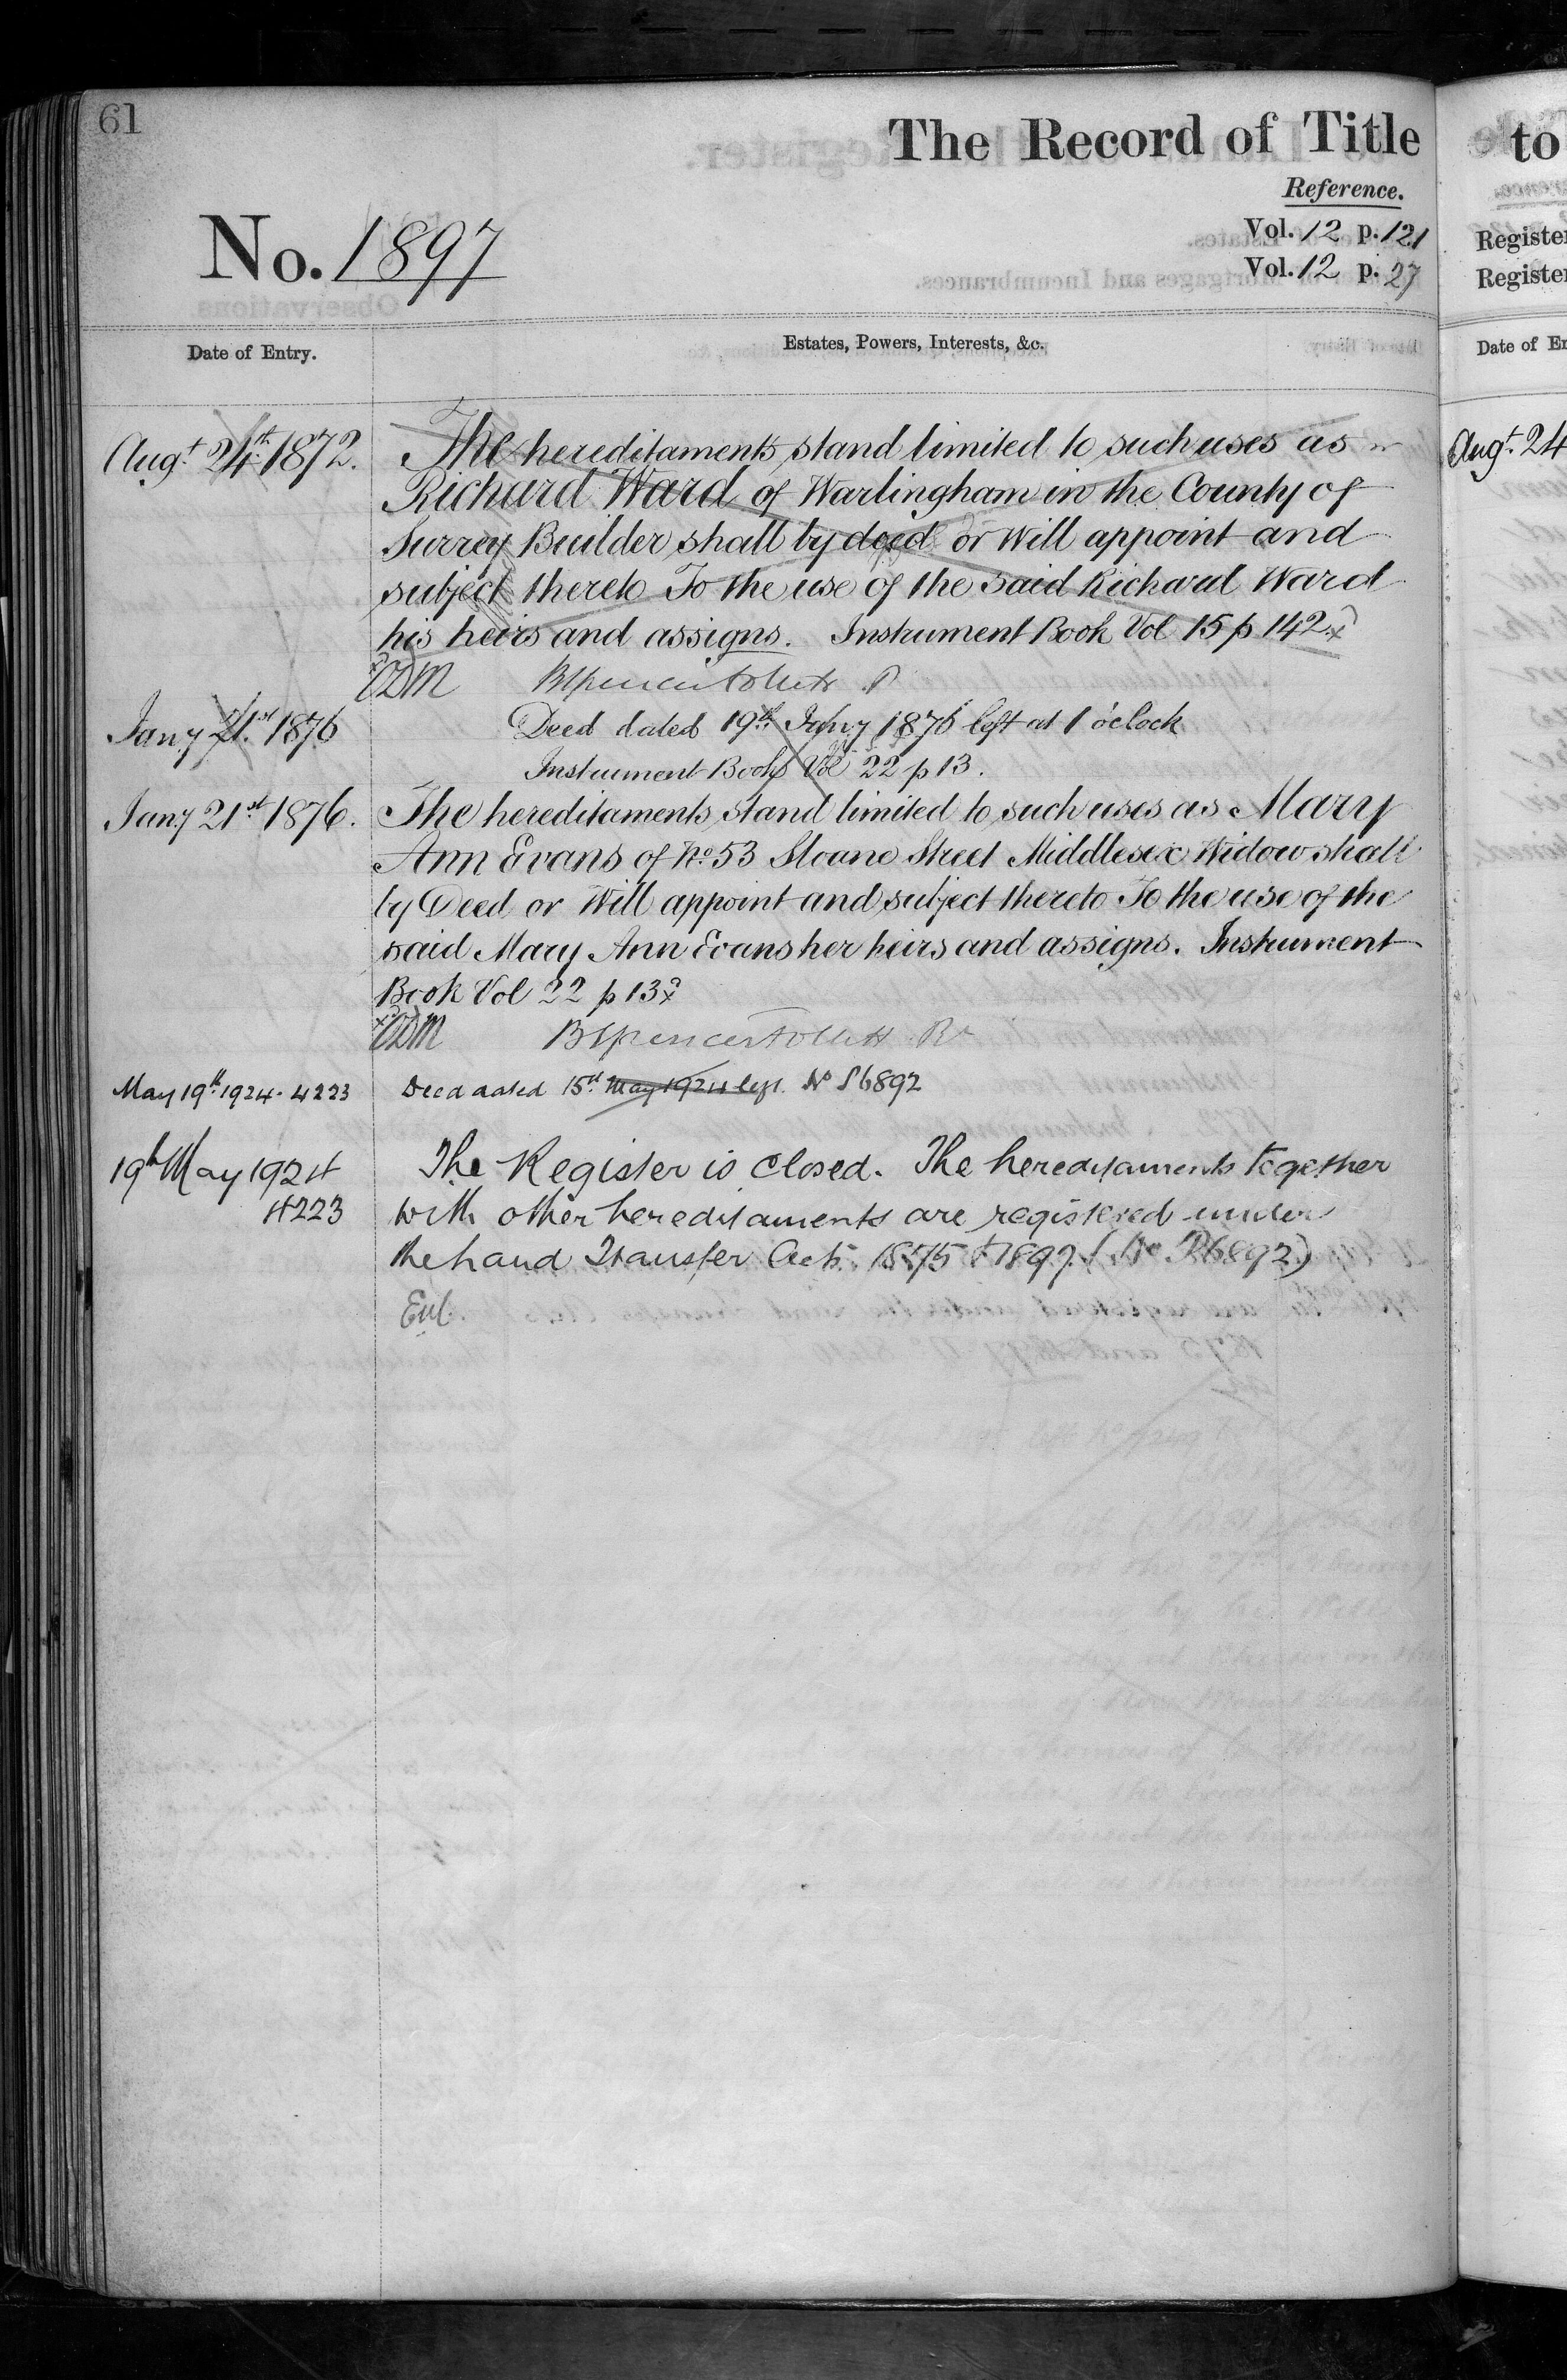 61
The Record of Title
to
Reference.
No. 1897
Vol. 12 p. 121
Vol. 12 p. 27
Register
Register
Date of Entry.
Estates, Powers, Interests, &c.
Date of En
Augt. 24th. 1872. The hereditaments stand limited to such uses as
Richard Ward of Warlingham in the County of
Surrey Builder shall by deed or Will appoint and
subject thereto To the use of the said Richard Ward
his heirs and assigns. Instrument Book Vol 15 p 142
Augt. 24
Jany 21st. 1876 Deed dated 19th. Jany 1876 left at 1 o'clock
Instrument Book Vol 22 p 13.
Jany 21st 1876. The hereditaments stand limited to such uses as Mary
Ann Evans of No. 53 Sloane Street Middlesex Widow shall
by Deed or Will appoint and subject thereto To the use of the
said Mary Ann Evans her heirs and assigns. Instrument
Book Vol 22 p 13
May 19th 1924. 4223 Deed dated 15th May 1924 left. No P6892
19th May 1924 The Register is closed. The hereditaments together
4223 with other hereditaments are registered under
the Land Transfer Acts 1875 & 1897. (No P6892)